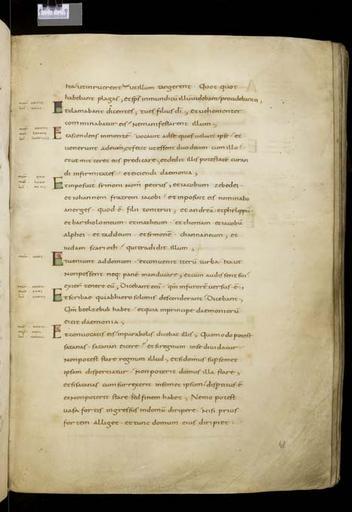 ita ut inruerent in illum ut illum tangerent Quot quot
habebant plagas, et sps inmundi cum illum videbant procidebant ei,
et clamabant dicentes, tu es filius di, et vehementer
comminabatur eis ne manifestarent illum,
Et ascendens in montem vocavit ad se quos voluit ipse et
venerunt ad eum, et fecit ut essent duodecim cum illo
et ut mitteret eos predicare, et dedit illis potestatem curandi
infirmitates et eiciendi daemonia,
Et imposuit simoni nomen petrus, et iacobum zebedei
et iohannem fratrem iacobi et imposuit eis nomina bo
anerges quod ÷ filii tonitrui, et andrea et philippū
et bartholomeum et matheum et thomam et iacobū
alphei et taddeum et simonem channaneum, et
iudam scarioth qui tradidit illum,
Et veniunt ad domum et convenit iterū turba ita ut
non possent neque pane manducare, et cum audissent sui
exierunt tenere eū, Dicebant enī qm in furorē versus ē,
Et scribae qui ab hierosolimis descenderant Dicebant,
Qm beelzebub habet et quia in principe daemoniorū
eicit daemonia,
Et convocatis eis in parabolis dicebat illis, Quomodo potest
satanas satanan eicere et si regnum in se dividatur
non potest stare regnum illud, et si domus super semet
ipsam dispertiatur non poterit domus illa stare,
et si satanas consurrexerit in semet ipsum dispertitus ē
et non poterit stare sed finem habet, Nemo potest
vasa fortis ingressus in domū diripere nisi prius
fortem alliget et tunc domum eius diripiet